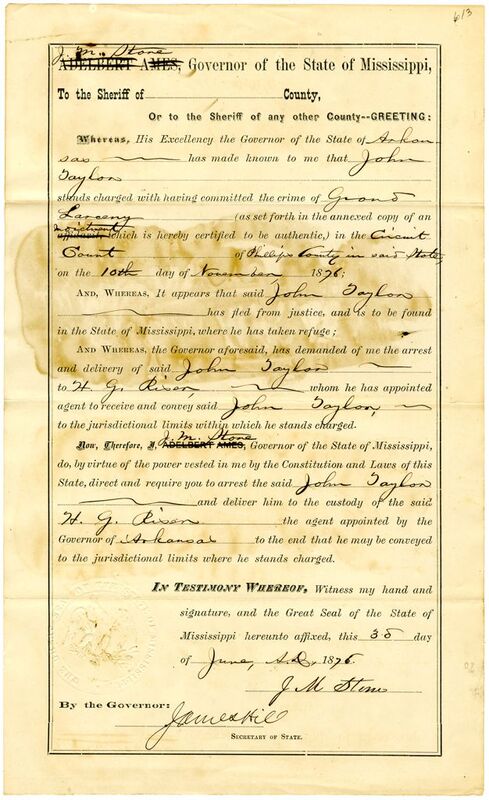 613
J. M. Stone
ADELBERT AMES, Governor of the State of Mississippi,
To the Sheriff of County,
Or to the Sheriff of any other County--GREETING:
Whereas, His Excellency the Governor of the State of Arkan-
sas has made known to me that John
Taylor
stands charged with having committed the crime of Grand
Larceny (as set forth in the annexed copy of an
indictment
affidavit, which is hereby certified to be authentic,) in the Circuit
Court of Phillips County in said State,
on the 10th day of November, 1876;
AND, WHEREAS, It appears that said John Taylor
has fled from justice, and is to be found
in the State of Mississippi, where he has taken refuge;
AND WHEREAS, the Governor aforesaid, has demanded of me the arrest
and delivery of said John Taylor
to H. G. Rixen, whom he has appointed
agent to receive and convey said John Taylor,
to the jurisdictional limits within which he stands charged.
J. M. Stone
Now, Therefore, I, ADELBERT AMES, Governor of the State of Mississippi,
do, by virtue of the power vested in me by the Constitution and Laws of this
State, direct and require you to arrest the said John Taylor
and deliver him to the custody of the said
H. G. Rixen the agent appointed by the
Governor of Arkansas to the end that he may be conveyed
to the jurisdictional limits where he stands charged.
IN TESTIMONY WHEREOF, Witness my hand and
signature, and the Great Seal of the State of
Mississippi hereunto affixed, this day
of June, A.D. 1876.
J M Stone
By the Governor:
James Hill
SECRETARY OF STATE.